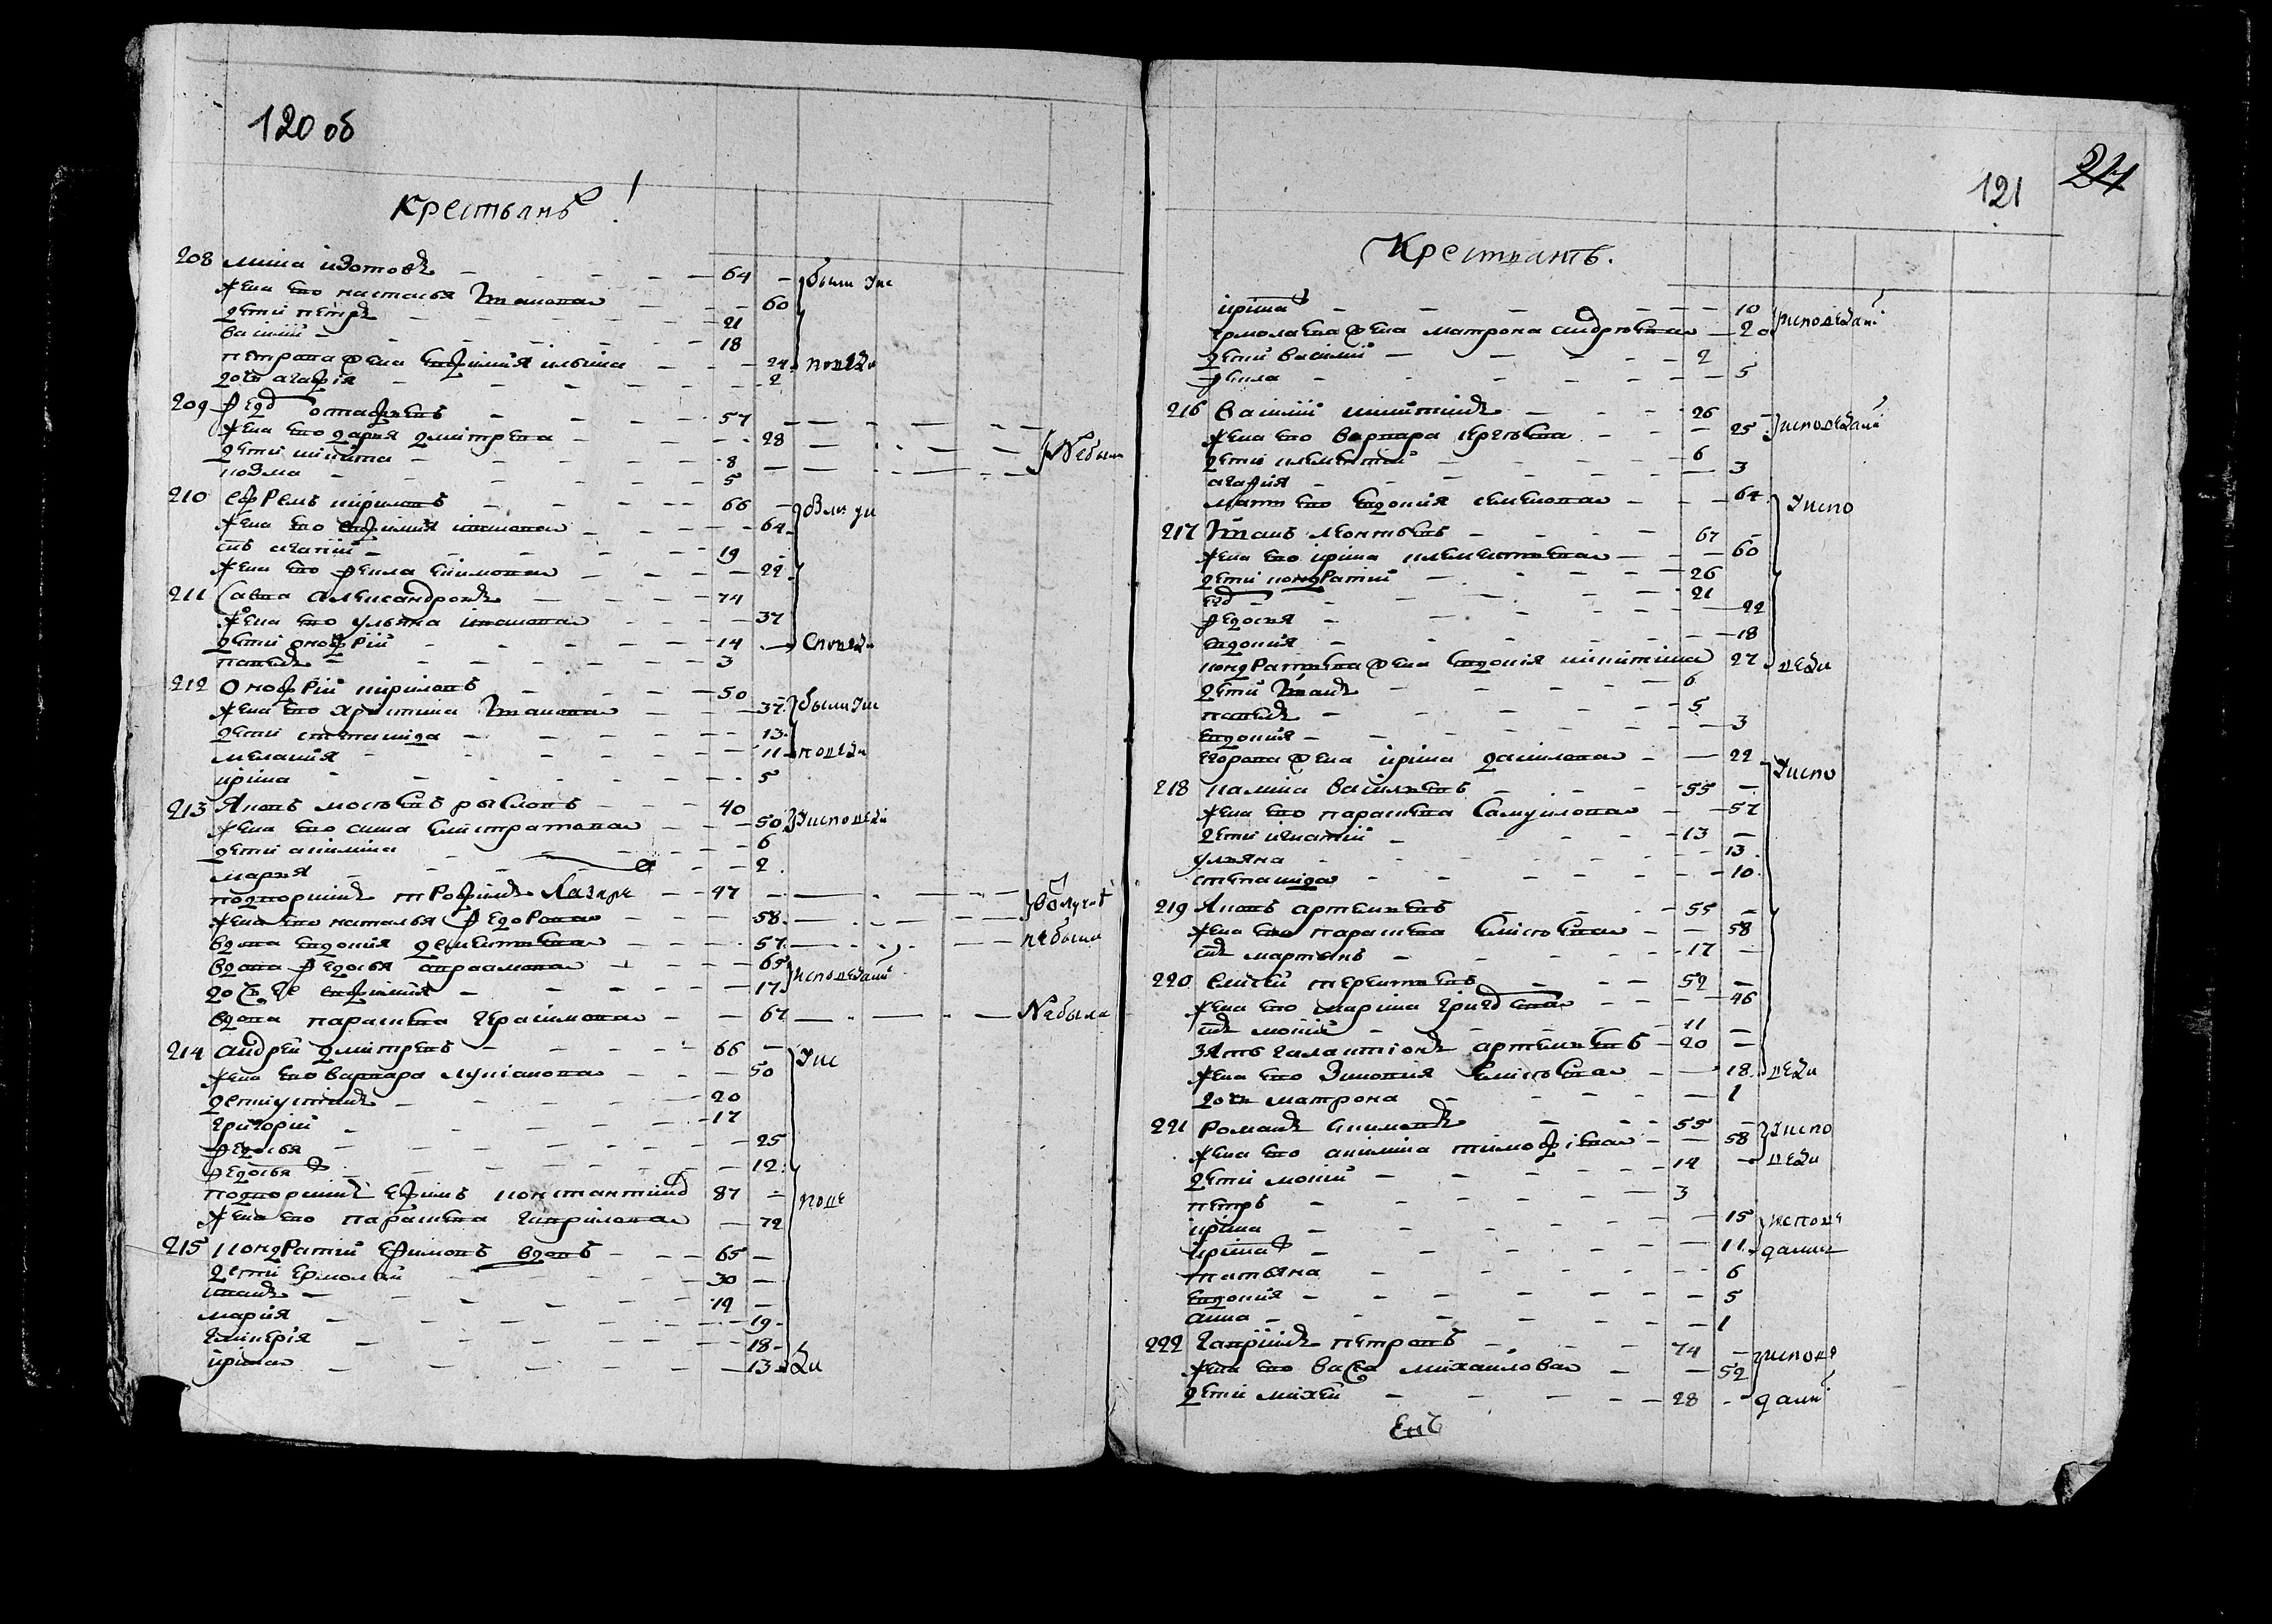 120 об
Крестьянъ
208 Мина Изотовъ 64 были у ис
жена ево Наталья Иванова 60
дети Петръ 21
Василий 18
Петрова жена Евфимия Ильина 24 поведи
дочь Агафия 2
209 Фед Остафьевъ 57
жена ево Дарья Дмитрева 28 Не были
дети Никита 8
Козма 5
210 Ефремъ Кириловъ 66
жена ево Евфимия Иванова 64
снъ Игнатий 19
жена ево Фекла Екимова 22
211 Савва Александровъ 74
жена ево Ульяна Иванова 37
дети Онофрий 14 споведи
Павелъ 3
212 Онофрий Кириловъ 50
жена ево Христина Иванова 37 были у ис
дети Степанида 13
Мелания 11 поведи
Ирина 5
213 Яковъ Мосеевъ 40
жена ево Анна Елистратова 50 у исповеди
дети Акилина 6
Марья 2
подворникъ Трофимъ Лазаре 47
жена ево Наталья Федорова 58
вдова Евдокия Дементьева 57 не были
вдова Федосья Авраамова 65 исповедани
дочь ее Евфимия 17
вдова Парасковья Герасимова 67 Не была
214 Андрей Дмитревъ 66 у ис
жена ево Варвара Лукианова 50
дети Устинъ 20
Григорий 17
Федосья 25
Федосья 12
подворникъ Ефимъ Константинов 87 пове
жена ево Парасковья Гаврилова 72
215 Кондратий Ефимовъ вдовъ 65
дети Ермолай 30
Иванъ 19
Мария 19
Гликерия 18
Ирина 13 ди
121 24
Крестьянъ.
Ирина 10 исповедани
Ермолаева жена Матрона Андреева 20
дети Василий 2
Фекла 5
216 Василий Никитинъ 26
жена ево Варвара Сергеева 25 исповедани
дети Климентий 6
Агафия 3
мати ево Евдокия Семенова 64 у испо
217 Иванъ Леонтьевъ 67
жена ево Ирина Климентьева 60
дети Кондратий 26
Егор 21
Федосья 22
Евдокия 18
Кондратьева жена Евдокия Никитина 27 веди
дети Иванъ 6
Павелъ 5
Евдокия 3
Егорова жена Ирина Данилова 22 у испо
218 Калина Васильевъ 55
жена ево Парасковья Самуилова 57
дети Игнатий 13
Ульяна 13
Степанида 10
219 Яковъ Артемьевъ 55
жена ево Парасковья Елисеева 58
снъ Мартынъ 17
220 Елисей Терентьевъ 52
жена ево Марина 46
снъ Мокий 11
зять Галактионъ Артемьевъ 20
жена ево Зиновия Елисеева 18 веди
дочь Матрона 1
221 Романъ Екимовъ 55 у испо
жена ево Акилина Тимофеева 58 веди
дети Мокий 14
Петръ 3
Ирина 15 испове
Ирина 11 даны
Татьяна 6
Евдокия 5
Анна 1
222 Гаврилъ Петровъ 74 испове
жена ево Васса Михайлова 52
дети Михей 28 дани